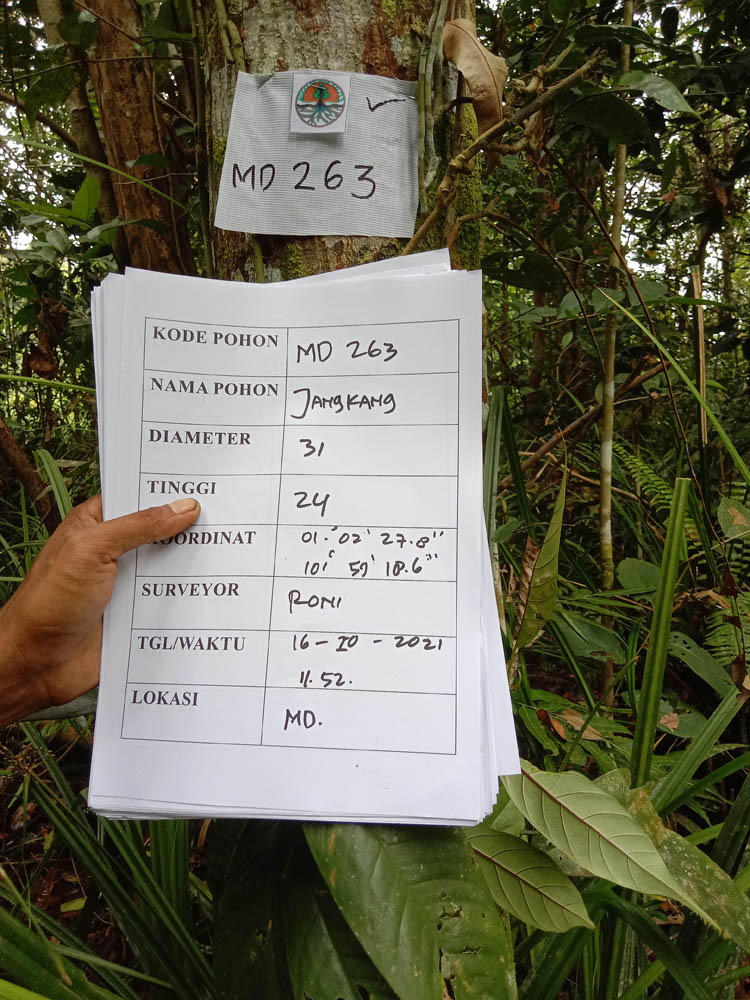 MD 263
KODE POHON MD 263
NAMA POHON JANGKANG
DIAMETER 31
TINGGI 24
KOORDINAT 01.° 02' 27.8"
101° 59' 18.6"
SURVEYOR RONI
TGL/WAKTU 16 - 10 - 2021
11.52.
LOKASI MD.